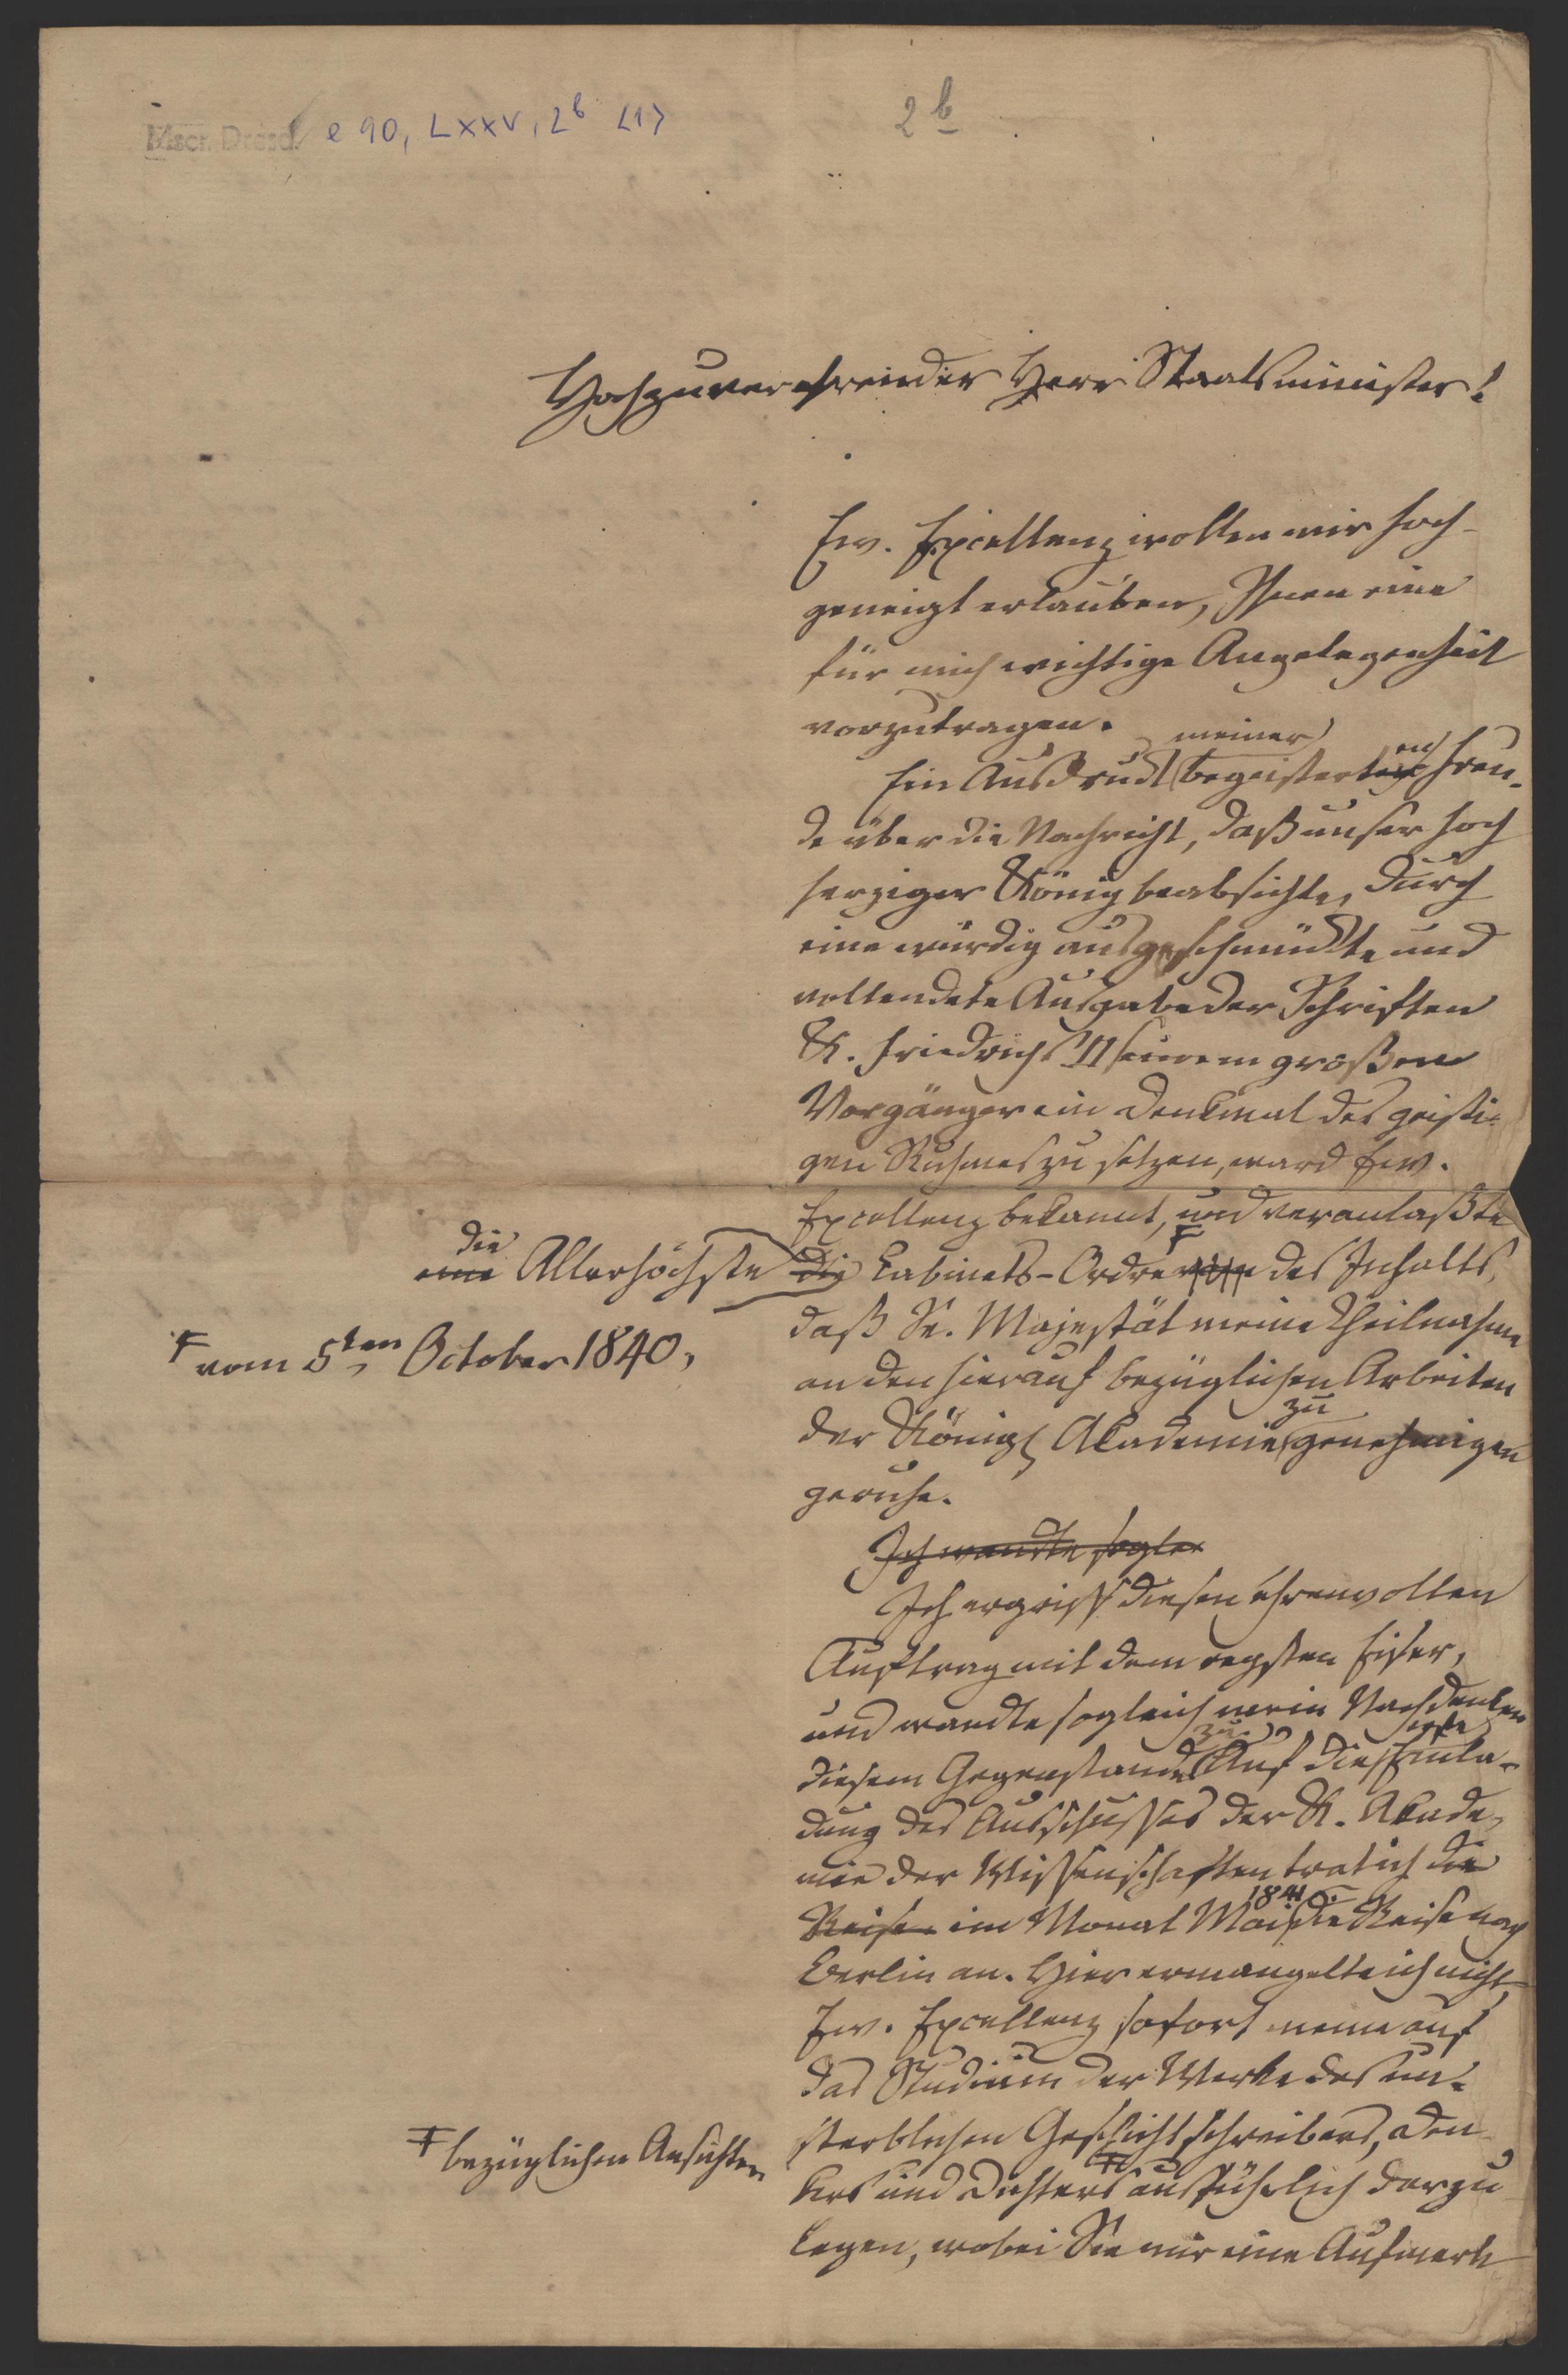 Mscr. Dresd. e 90, LXXV, 2b <1>
2 b
Hochzuverehrender Herr Staatsminister!
Ew. Excellenz wollen mir hoch-
geneigt erlauben, Ihnen eine
für mich wichtige Angelegenheit
vorzutragen.
meiner
en
Ein Ausdruck begeisterter Freu-
de über die Nachricht, daß unser hoch
herziger König beabsichte, durch
eine würdig ausgeschmückte und
vollendete Ausgabe der Schriften
K. Friedrichs II seinem großen
Vorgänger ein Denkmal des geisti-
gen Ruhmes zu setzen, ward Ew.
Excellenz bekannt, und veranlaßte
die
eine Allerhöchste die Cabinets-Ordre des Inhalts,
daß Se. Majestät meine Theilnahme
vom 5ten October 1840,
an den hierauf bezüglichen Arbeiten
zu
der Königl Akademie genehmigen
geruhe.
Ich wandte soglei
Ich ergriff diesen ehrenvollen
Auftrag mit dem regsten Eifer,
und wandte sogleich mein Nachdenken
zu erste
diesem Gegenstande Auf die Einla-
dung des Ausschusses der K. Akade-
mie der Wissenschaften trat ich die
1841
Reise im Monat Mai die Reise nach
Berlin an. Hier ermangelte ich nicht,
Ew. Excellenz sofort meine auf
das Studium der Werke des un-
sterblichen Geschichtschreibers, Den-
bezüglichen Ansichten
kers und Dichters ausführlich darzu
legen, wobei Sie mir eine Aufmerk